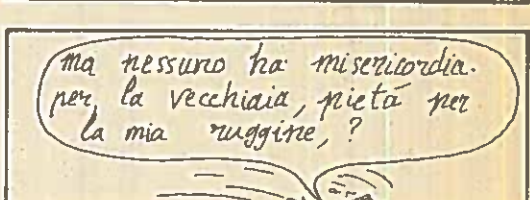 ma nessuno ha misericordia.
per la vecchiaia, pietá per
la mia ruggine, ?